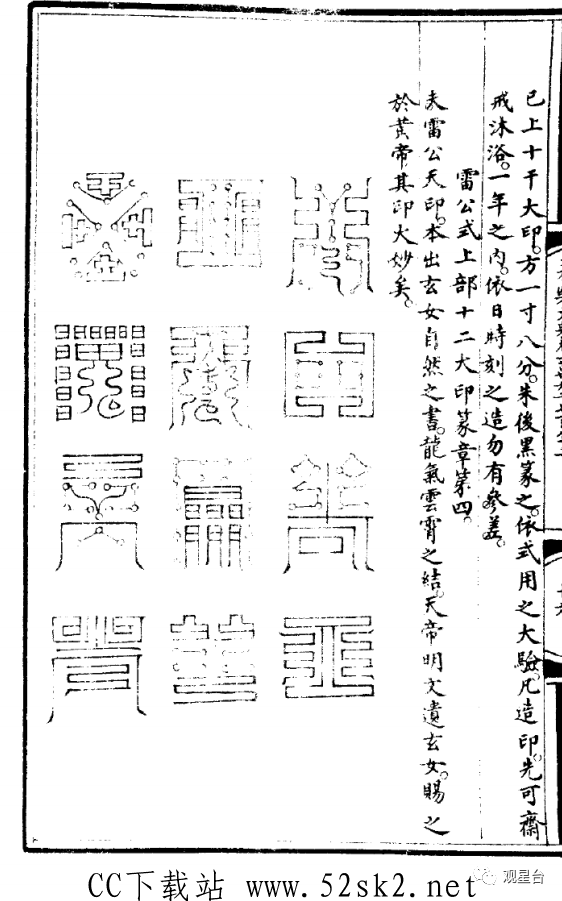 已上十干大印。方一寸八分。朱後黑篆之。依式用之大驗。凡造印。先可齋
戒沐浴。一年之內。依日時刻之造勿有參差。
雷公式上部十二大印篆章第四。
夫雷公天印。本出玄女自然之書。龍氣雲霄之結。天帝明文遺玄女。賜之
於黃帝其印大妙矣。
CC下载站 www.52sk2.net
观星台